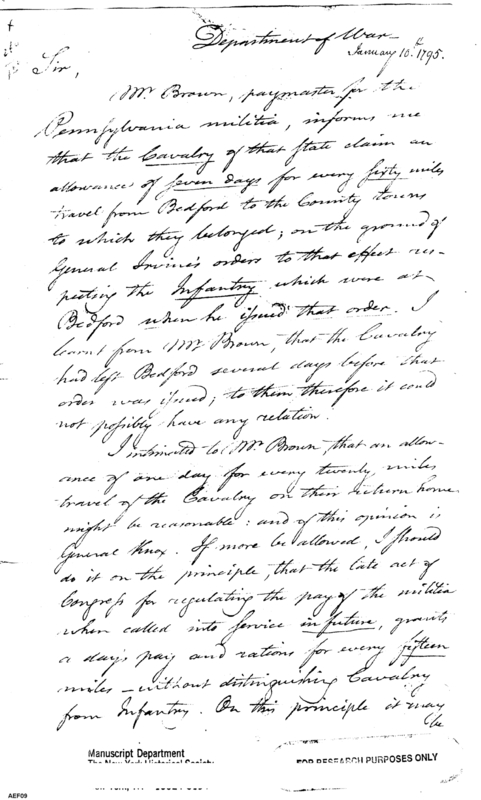 Department of War
January 10th 1795.
Sir,
Mr. Brown, paymaster for the
Pennsylvania militia, informs me
that the Cavalry of that State claim an
allowance of seven days for every sixty miles
travel from Bedford to the County towns
to which they belonged; on the ground of
General Irvine's orders to that effect res-
pecting the Infantry which were at
Bedford when he issued that order. I
learnt from Mr. Brown, that the Cavalry
had left Bedford several days before that
order was issued; to them therefore it could
not possibly have any relation.
I intimated to Mr. Brown, that an allow-
ance of one day for every twenty miles
travel of the Cavalry on their return home
might be reasonable: and of this opinion is
General Knox. If more be allowed, I should
do it on the principle, that the late act of
Congress for regulating the pay of the militia
when called into service in future, grants
a day's pay and rations for every fifteen
miles - without distinguishing Cavalry
from Infantry. On this principle it may
be
Manuscript Department
The New-York Historical Society
FOR RESEARCH PURPOSES ONLY
AEF09